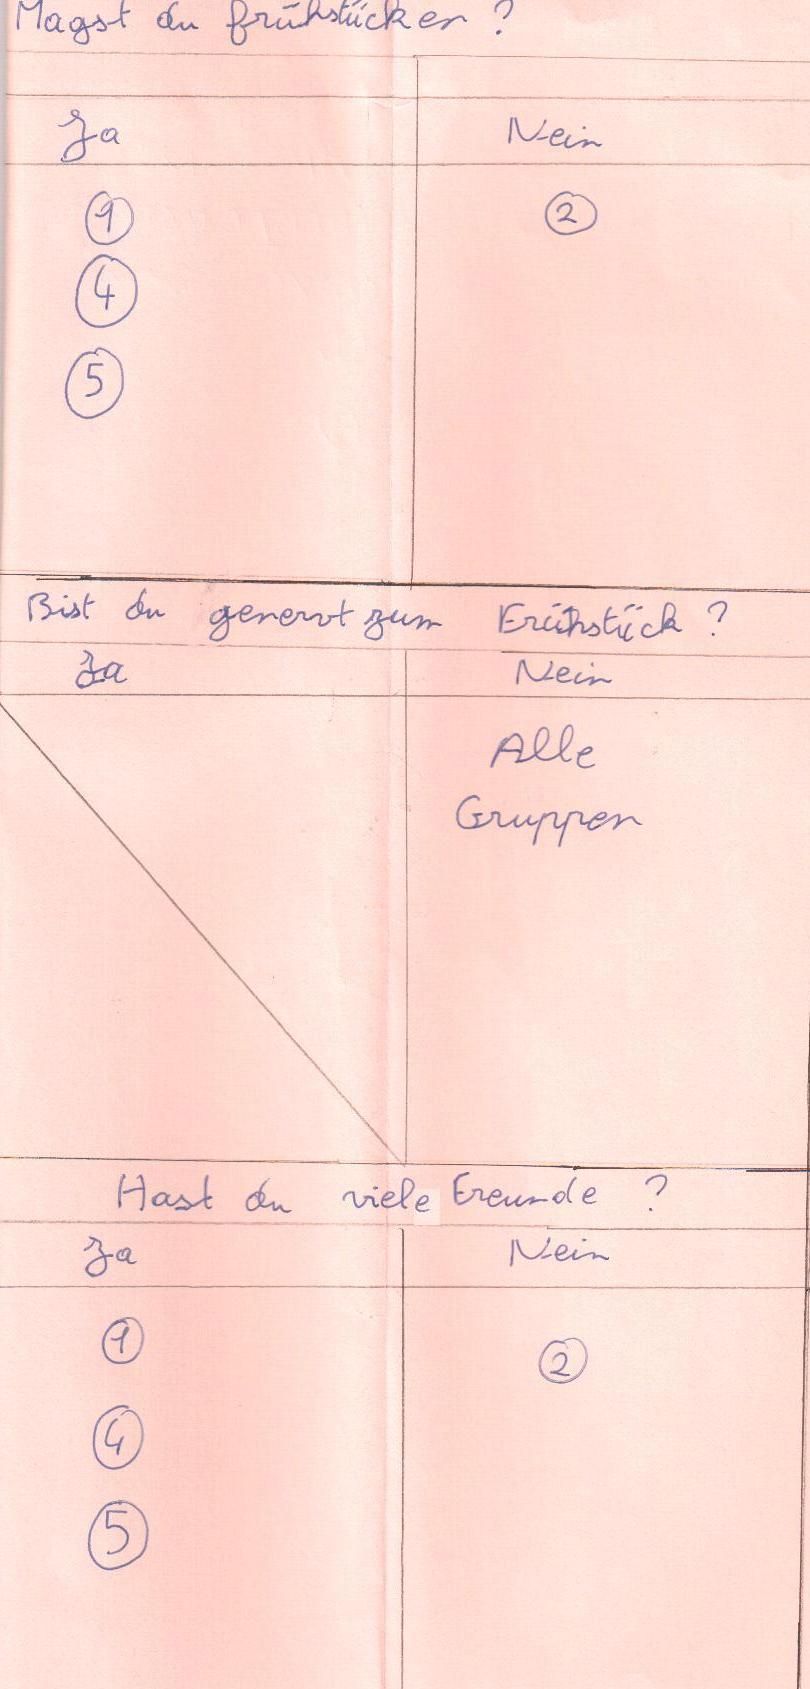 Magst du frühstücken ?
Ja Nein
1 2
4
5
Bist du genervt zum Frühstück ?
Ja Nein
Alle
Gruppen
Hast du viele Freunde ?
Ja Nein
1 2
4
5